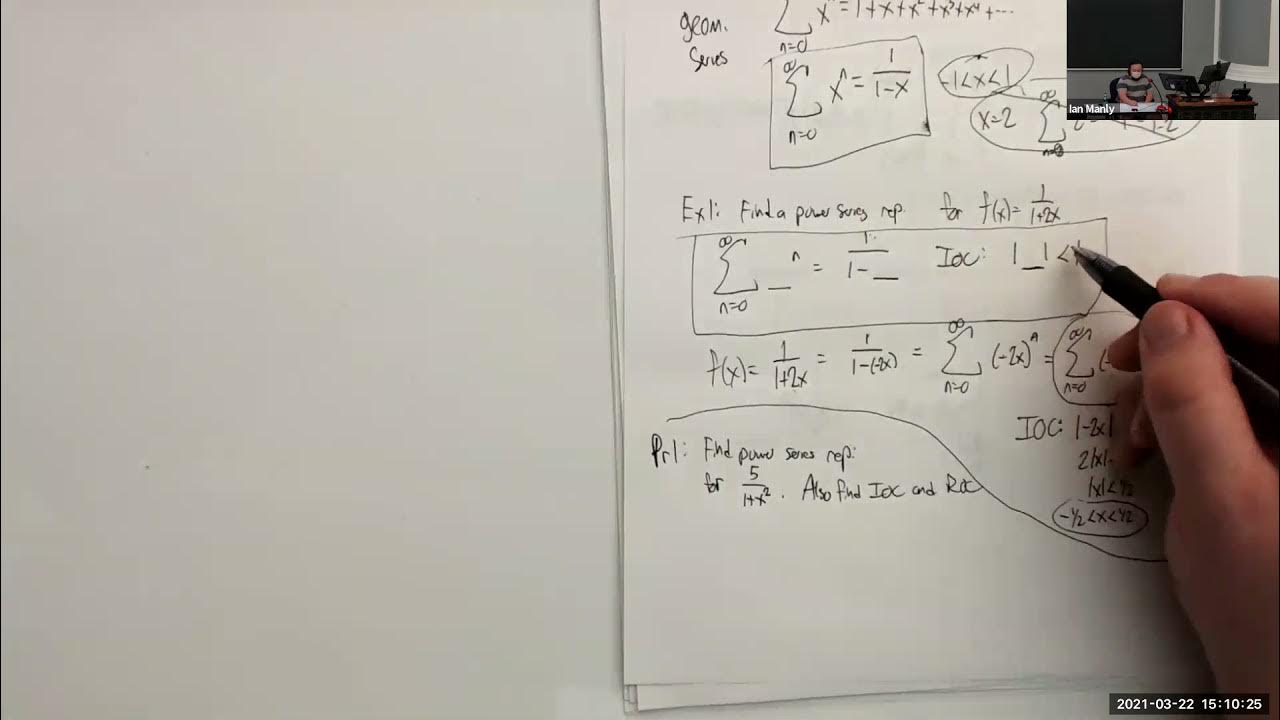 geom. series ∑ n=0 xⁿ = 1+x+x²+x³+x⁴+...
∞ ∑ n=0 xⁿ = 1/(1-x) -1<x<1
x=2 ∞ ∑ n=0
Ian Manly
Ex1: Find a power series rep. for f(x)= 1/(1+2x)
∞ ∑ n=0 _ⁿ = 1/(1-_) IOC: |_|<1
f(x)= 1/(1+2x) = 1/(1-(-2x)) = ∞ ∑ n=0 (-2x)ⁿ = ∞ ∑ n=0 (-
IOC: |-2x|
2|x|
|x|<1/2
-1/2<x<1/2
Pr1: Find power series rep.
for 5/(1+x²). Also find IOC and ROC
2021-03-22 15:10:25